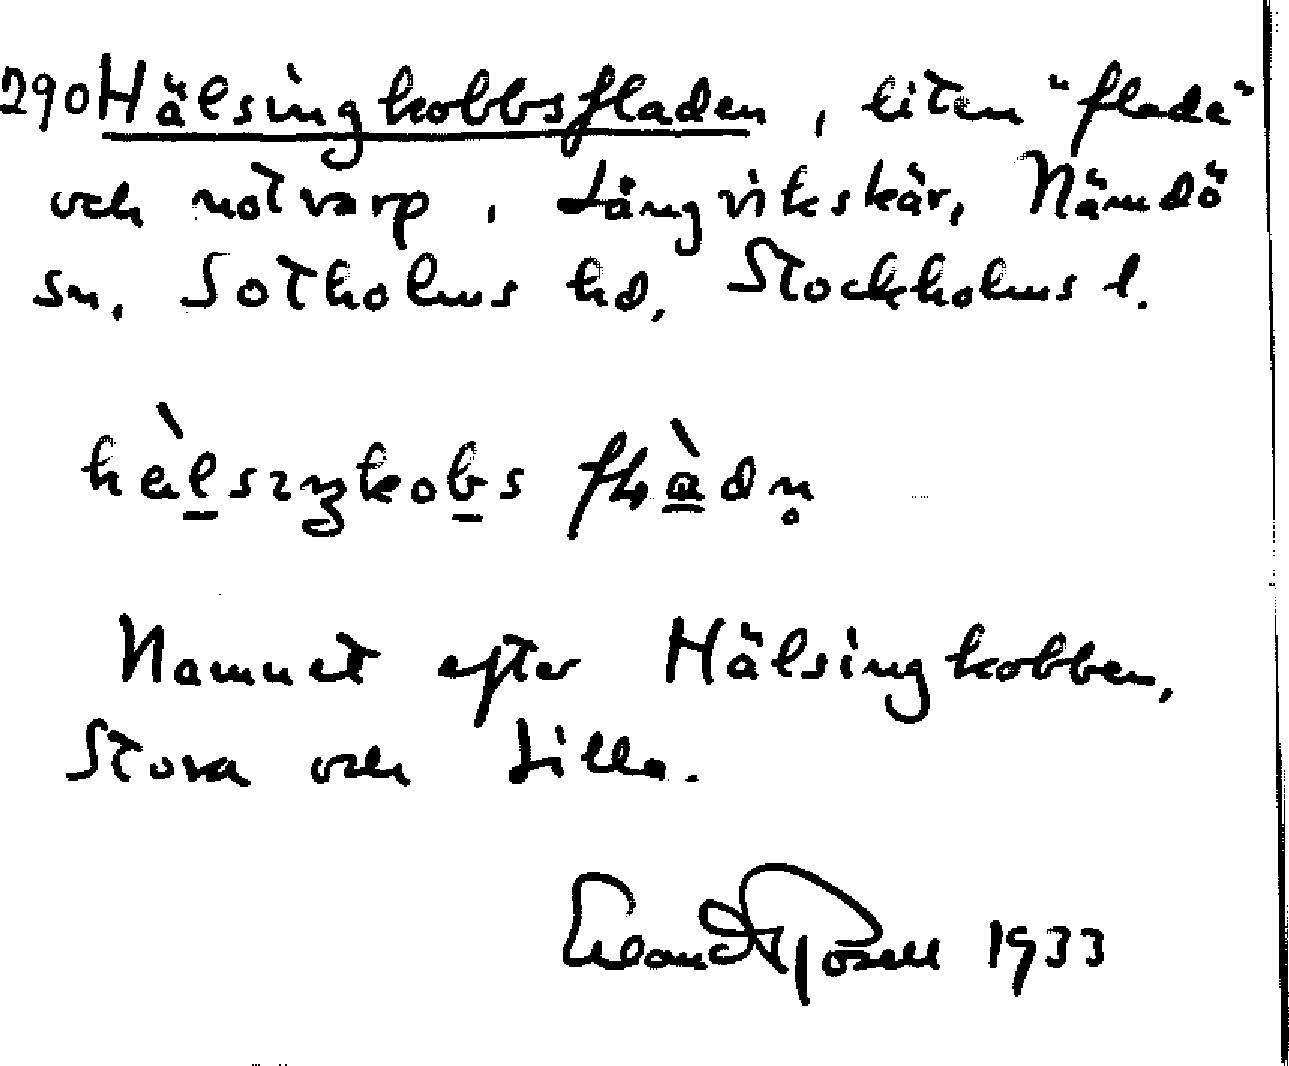 290 Hälsingkobbsfladen, liten "flade"
och notvarp, Långvikskär, Nämdö
sn, Sotholms hd, Stockholms l.
Namnet efter Hälsingkobben,
Stora och Lilla.
Erland Rosell 1933